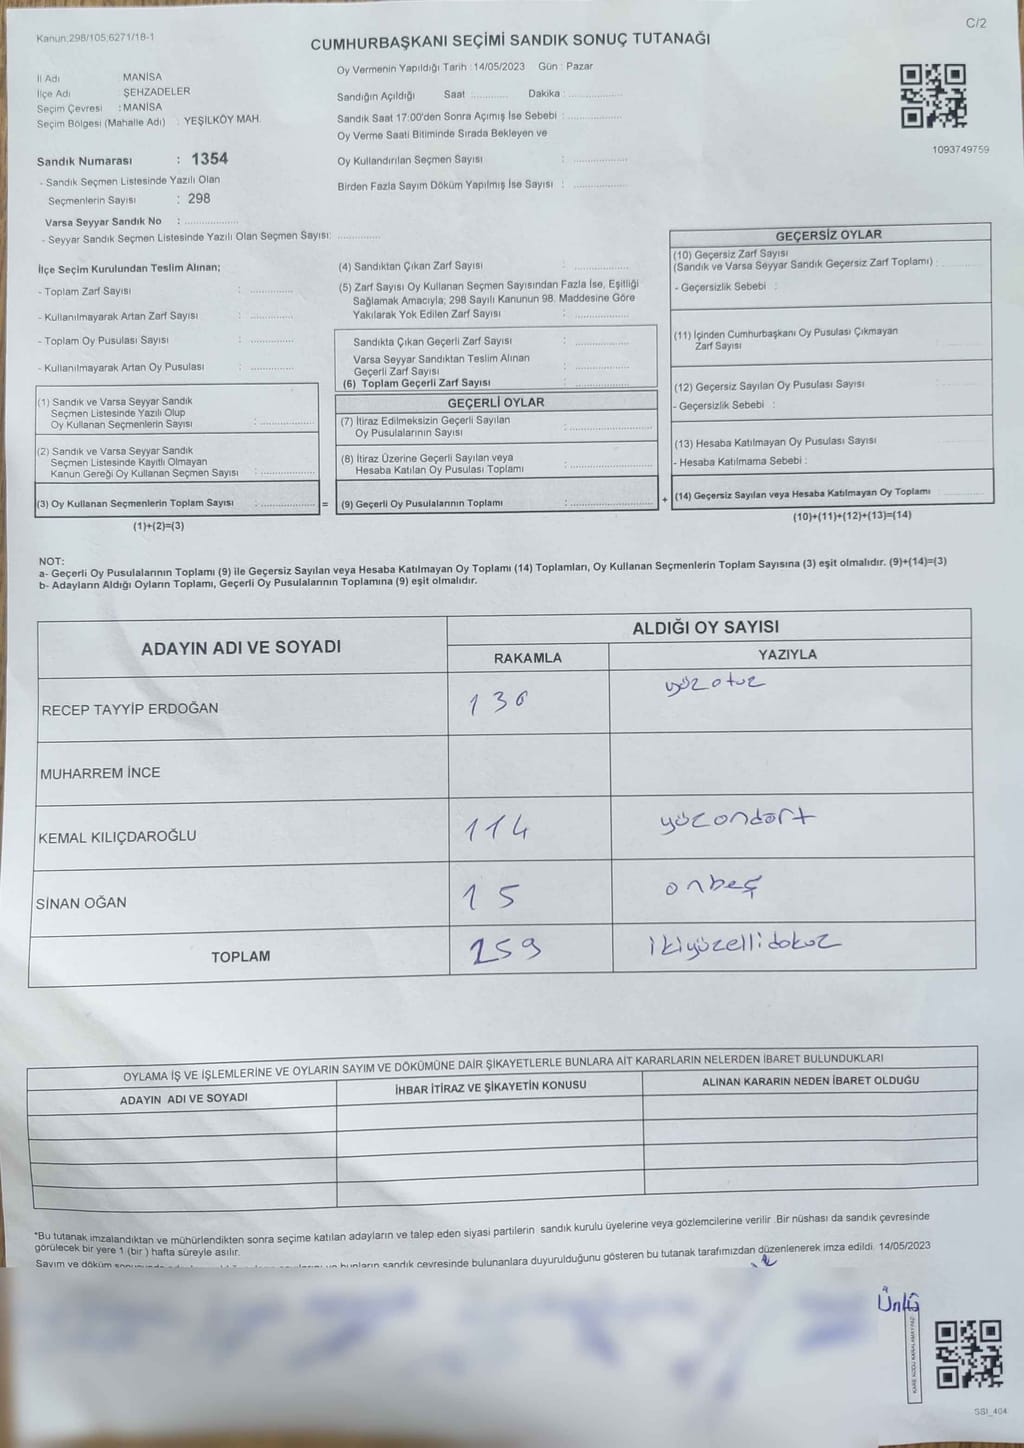 Kanun:298/105;6271/18-1
C/2
CUMHURBAŞKANI SEÇİMİ SANDIK SONUÇ TUTANAĞI
İl Adı MANİSA
İlçe Adı ŞEHZADELER
Seçim Çevresi : MANİSA
Seçim Bölgesi (Mahalle Adı) : YEŞİLKÖY MAH.
Oy Vermenin Yapıldığı Tarih : 14/05/2023 Gün : Pazar
Sandığın Açıldığı Saat : ............ Dakika : ..................
Sandık Saat 17:00'den Sonra Açımış İse Sebebi : ..................
Oy Verme Saati Bitiminde Sırada Bekleyen ve
Oy Kullandırılan Seçmen Sayısı : ..................
Birden Fazla Sayım Döküm Yapılmış İse Sayısı : ..................
1093749759
Sandık Numarası : 1354
- Sandık Seçmen Listesinde Yazılı Olan
Seçmenlerin Sayısı : 298
Varsa Seyyar Sandık No : ..................
- Seyyar Sandık Seçmen Listesinde Yazılı Olan Seçmen Sayısı: ..............
İlçe Seçim Kurulundan Teslim Alınan;
- Toplam Zarf Sayısı : ..............
- Kullanılmayarak Artan Zarf Sayısı : ..............
- Toplam Oy Pusulası Sayısı : ..............
- Kullanılmayarak Artan Oy Pusulası : ..............
(1) Sandık ve Varsa Seyyar Sandık
Seçmen Listesinde Yazılı Olup
Oy Kullanan Seçmenlerin Sayısı : ..................
(2) Sandık ve Varsa Seyyar Sandık
Seçmen Listesinde Kayıtlı Olmayan
Kanun Gereği Oy Kullanan Seçmen Sayısı : ..................
(3) Oy Kullanan Seçmenlerin Toplam Sayısı : .................. =
(1)+(2)=(3)
(4) Sandıktan Çıkan Zarf Sayısı : ..................
(5) Zarf Sayısı Oy Kullanan Seçmen Sayısından Fazla İse, Eşitliği
Sağlamak Amacıyla; 298 Sayılı Kanunun 98. Maddesine Göre
Yakılarak Yok Edilen Zarf Sayısı : ..................
Sandıkta Çıkan Geçerli Zarf Sayısı : ..................
Varsa Seyyar Sandıktan Teslim Alınan
Geçerli Zarf Sayısı : ..................
(6) Toplam Geçerli Zarf Sayısı : ..................
GEÇERLİ OYLAR
(7) İtiraz Edilmeksizin Geçerli Sayılan
Oy Pusulalarının Sayısı : ..................
(8) İtiraz Üzerine Geçerli Sayılan veya
Hesaba Katılan Oy Pusulası Toplamı : ..................
(9) Geçerli Oy Pusulalarının Toplamı : .................. +
GEÇERSİZ OYLAR
(10) Geçersiz Zarf Sayısı
(Sandık ve Varsa Seyyar Sandık Geçersiz Zarf Toplamı) :
- Geçersizlik Sebebi :
(11) İçinden Cumhurbaşkanı Oy Pusulası Çıkmayan
Zarf Sayısı
(12) Geçersiz Sayılan Oy Pusulası Sayısı
- Geçersizlik Sebebi :
(13) Hesaba Katılmayan Oy Pusulası Sayısı
- Hesaba Katılmama Sebebi :
(14) Geçersiz Sayılan veya Hesaba Katılmayan Oy Toplamı
(10)+(11)+(12)+(13)=(14)
NOT:
a- Geçerli Oy Pusulalarının Toplamı (9) ile Geçersiz Sayılan veya Hesaba Katılmayan Oy Toplamı (14) Toplamları, Oy Kullanan Seçmenlerin Toplam Sayısına (3) eşit olmalıdır. (9)+(14)=(3)
b- Adayların Aldığı Oyların Toplamı, Geçerli Oy Pusulalarının Toplamına (9) eşit olmalıdır.
ADAYIN ADI VE SOYADI
ALDIĞI OY SAYISI
RAKAMLA YAZIYLA
RECEP TAYYİP ERDOĞAN 130 yüzotuz
MUHARREM İNCE
KEMAL KILIÇDAROĞLU 114 yüzondört
SİNAN OĞAN 15 onbeş
TOPLAM 259 ikiyüzellidokuz
OYLAMA İŞ VE İŞLEMLERİNE VE OYLARIN SAYIM VE DÖKÜMÜNE DAİR ŞİKAYETLERLE BUNLARA AİT KARARLARIN NELERDEN İBARET BULUNDUKLARI
ADAYIN ADI VE SOYADI İHBAR İTİRAZ VE ŞİKAYETİN KONUSU ALINAN KARARIN NEDEN İBARET OLDUĞU
*Bu tutanak imzalandıktan ve mühürlendikten sonra seçime katılan adayların ve talep eden siyasi partilerin sandık kurulu üyelerine veya gözlemcilerine verilir. Bir nüshası da sandık çevresinde
görülecek bir yere 1 (bir ) hafta süreyle asılır.
Sayım ve döküm bunların sandık çevresinde bulunanlara duyurulduğunu gösteren bu tutanak tarafımızdan düzenlenerek imza edildi. 14/05/2023
Ünlü
SSI_404